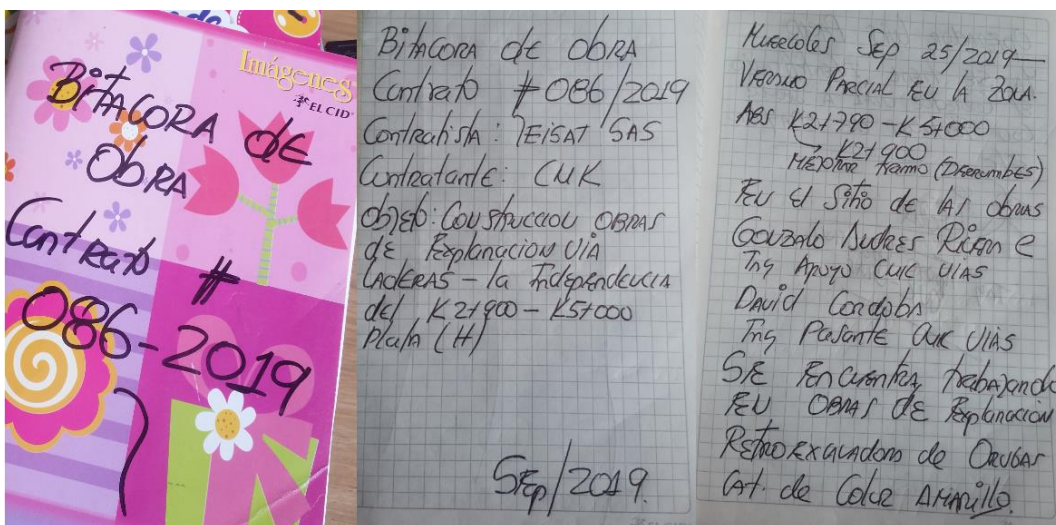 Imágenes
EL CID
BITACORA DE
ObRA
Contrato #
086-2019
BitACORA de ObRA
Contrato #086/2019
Contratista: TEISAT SAS
Contratante: CMK
Objeto: Construccion OBRAS
de Explanacion VIA
LADERAS - la Independencia
del K2+900 - K5+000
Plata (H)
Sep/2019.
Miercoles Sep 25/2019
VERANO PARCIAL EN LA ZONA.
Abs K2+790 - K5+000
K2+900
MEJORAR tramo (DERRUMBES)
EN El Sitio de las obras
GONZALO ANDRES
Ing Apoyo CMK VIAS
David Cordoba
Ing Pasante CMK VIAS
SE Encuentra trabajando
EN OBRAS de Explanacion
Retroexcavadora de ORUGAS
CAt. de Color AMARILLO.